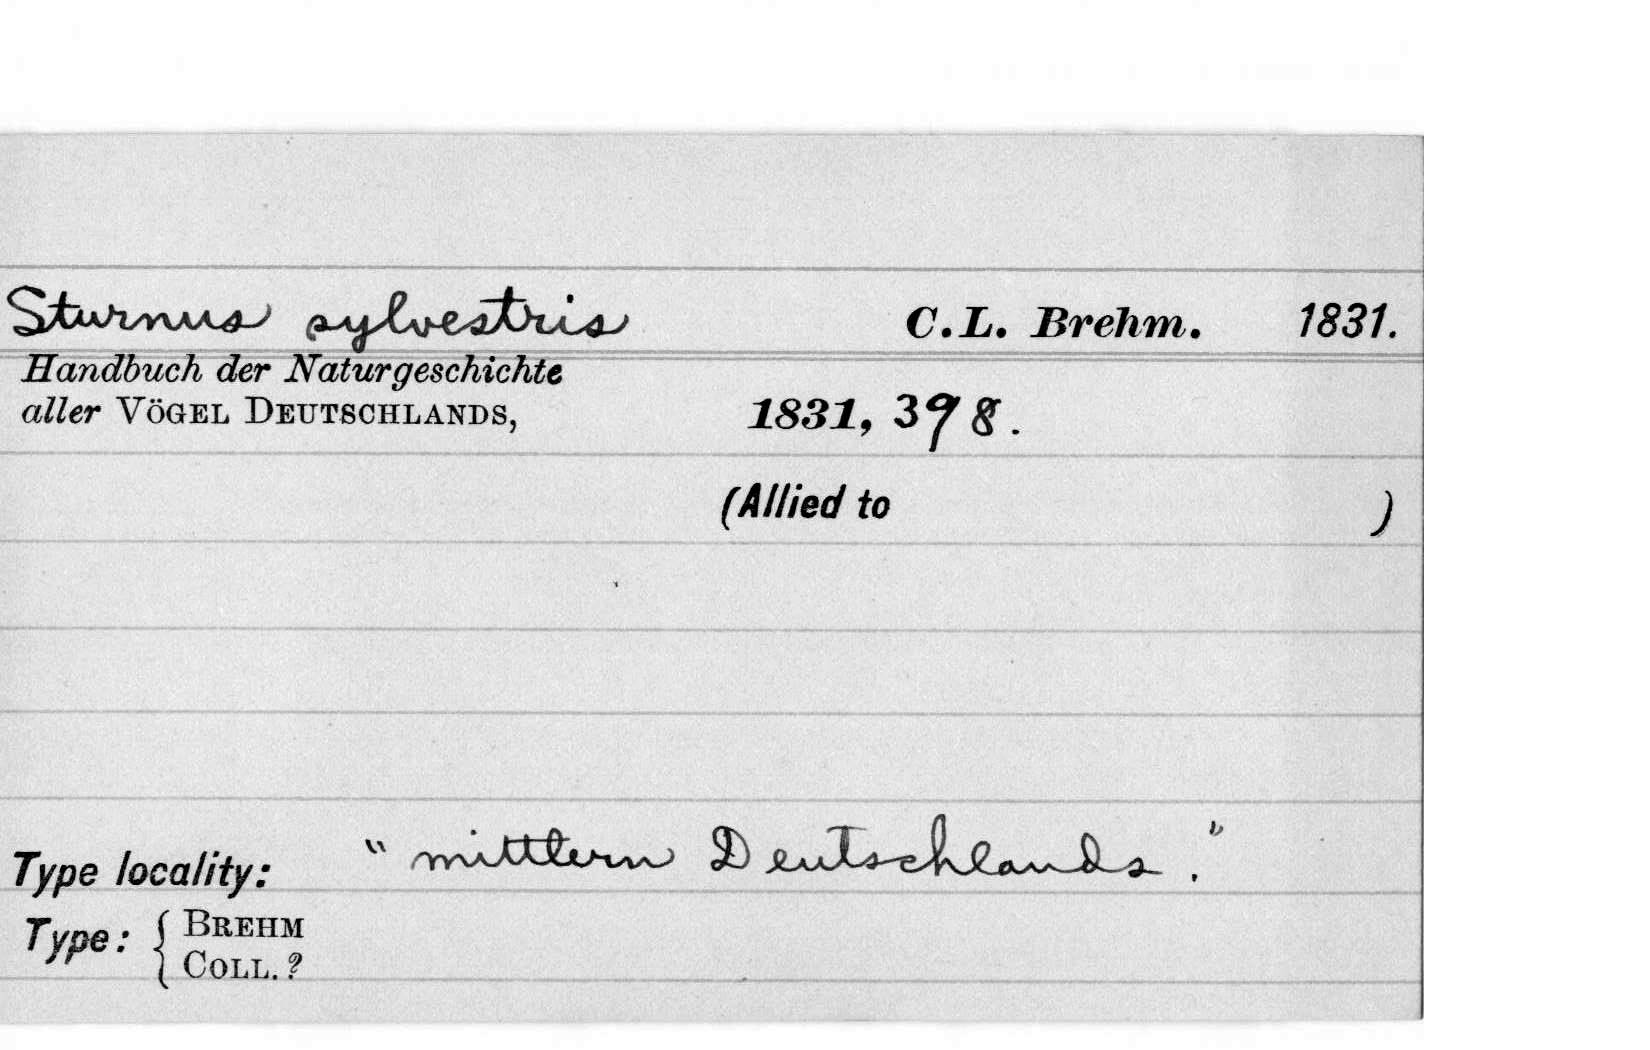 Sturnus sylvestris C.L. Brehm. 1831.
Handbuch der Naturgeschichte
aller VÖGEL DEUTSCHLANDS, 1831, 398.
(Allied to )
Type locality: "mittlern Deutschlands."
Type: { BREHM
COLL. ?